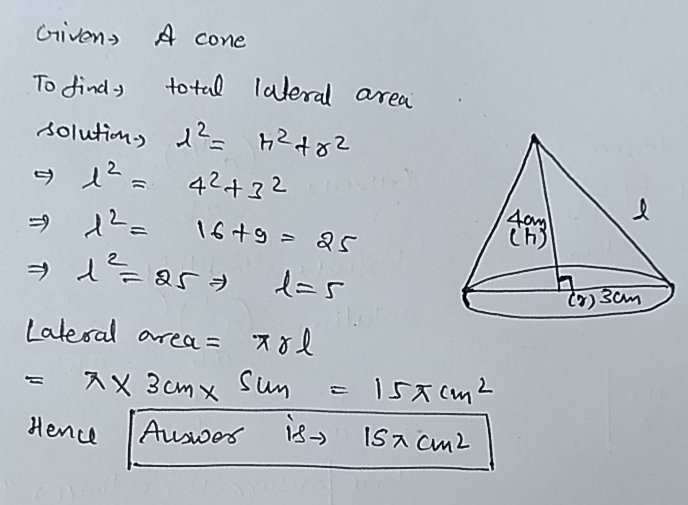 Given→ A cone
To find→ total lateral area
solution→ l² = h²+r²
⇒ l² = 4²+3²
⇒ l² = 16+9 = 25
⇒ l² = 25 ⇒ l=5
4cm
(h)
l
(r) 3cm
Lateral area = πrl
= π × 3cm × 5cm = 15π cm²
Hence Answer is→ 15π cm2